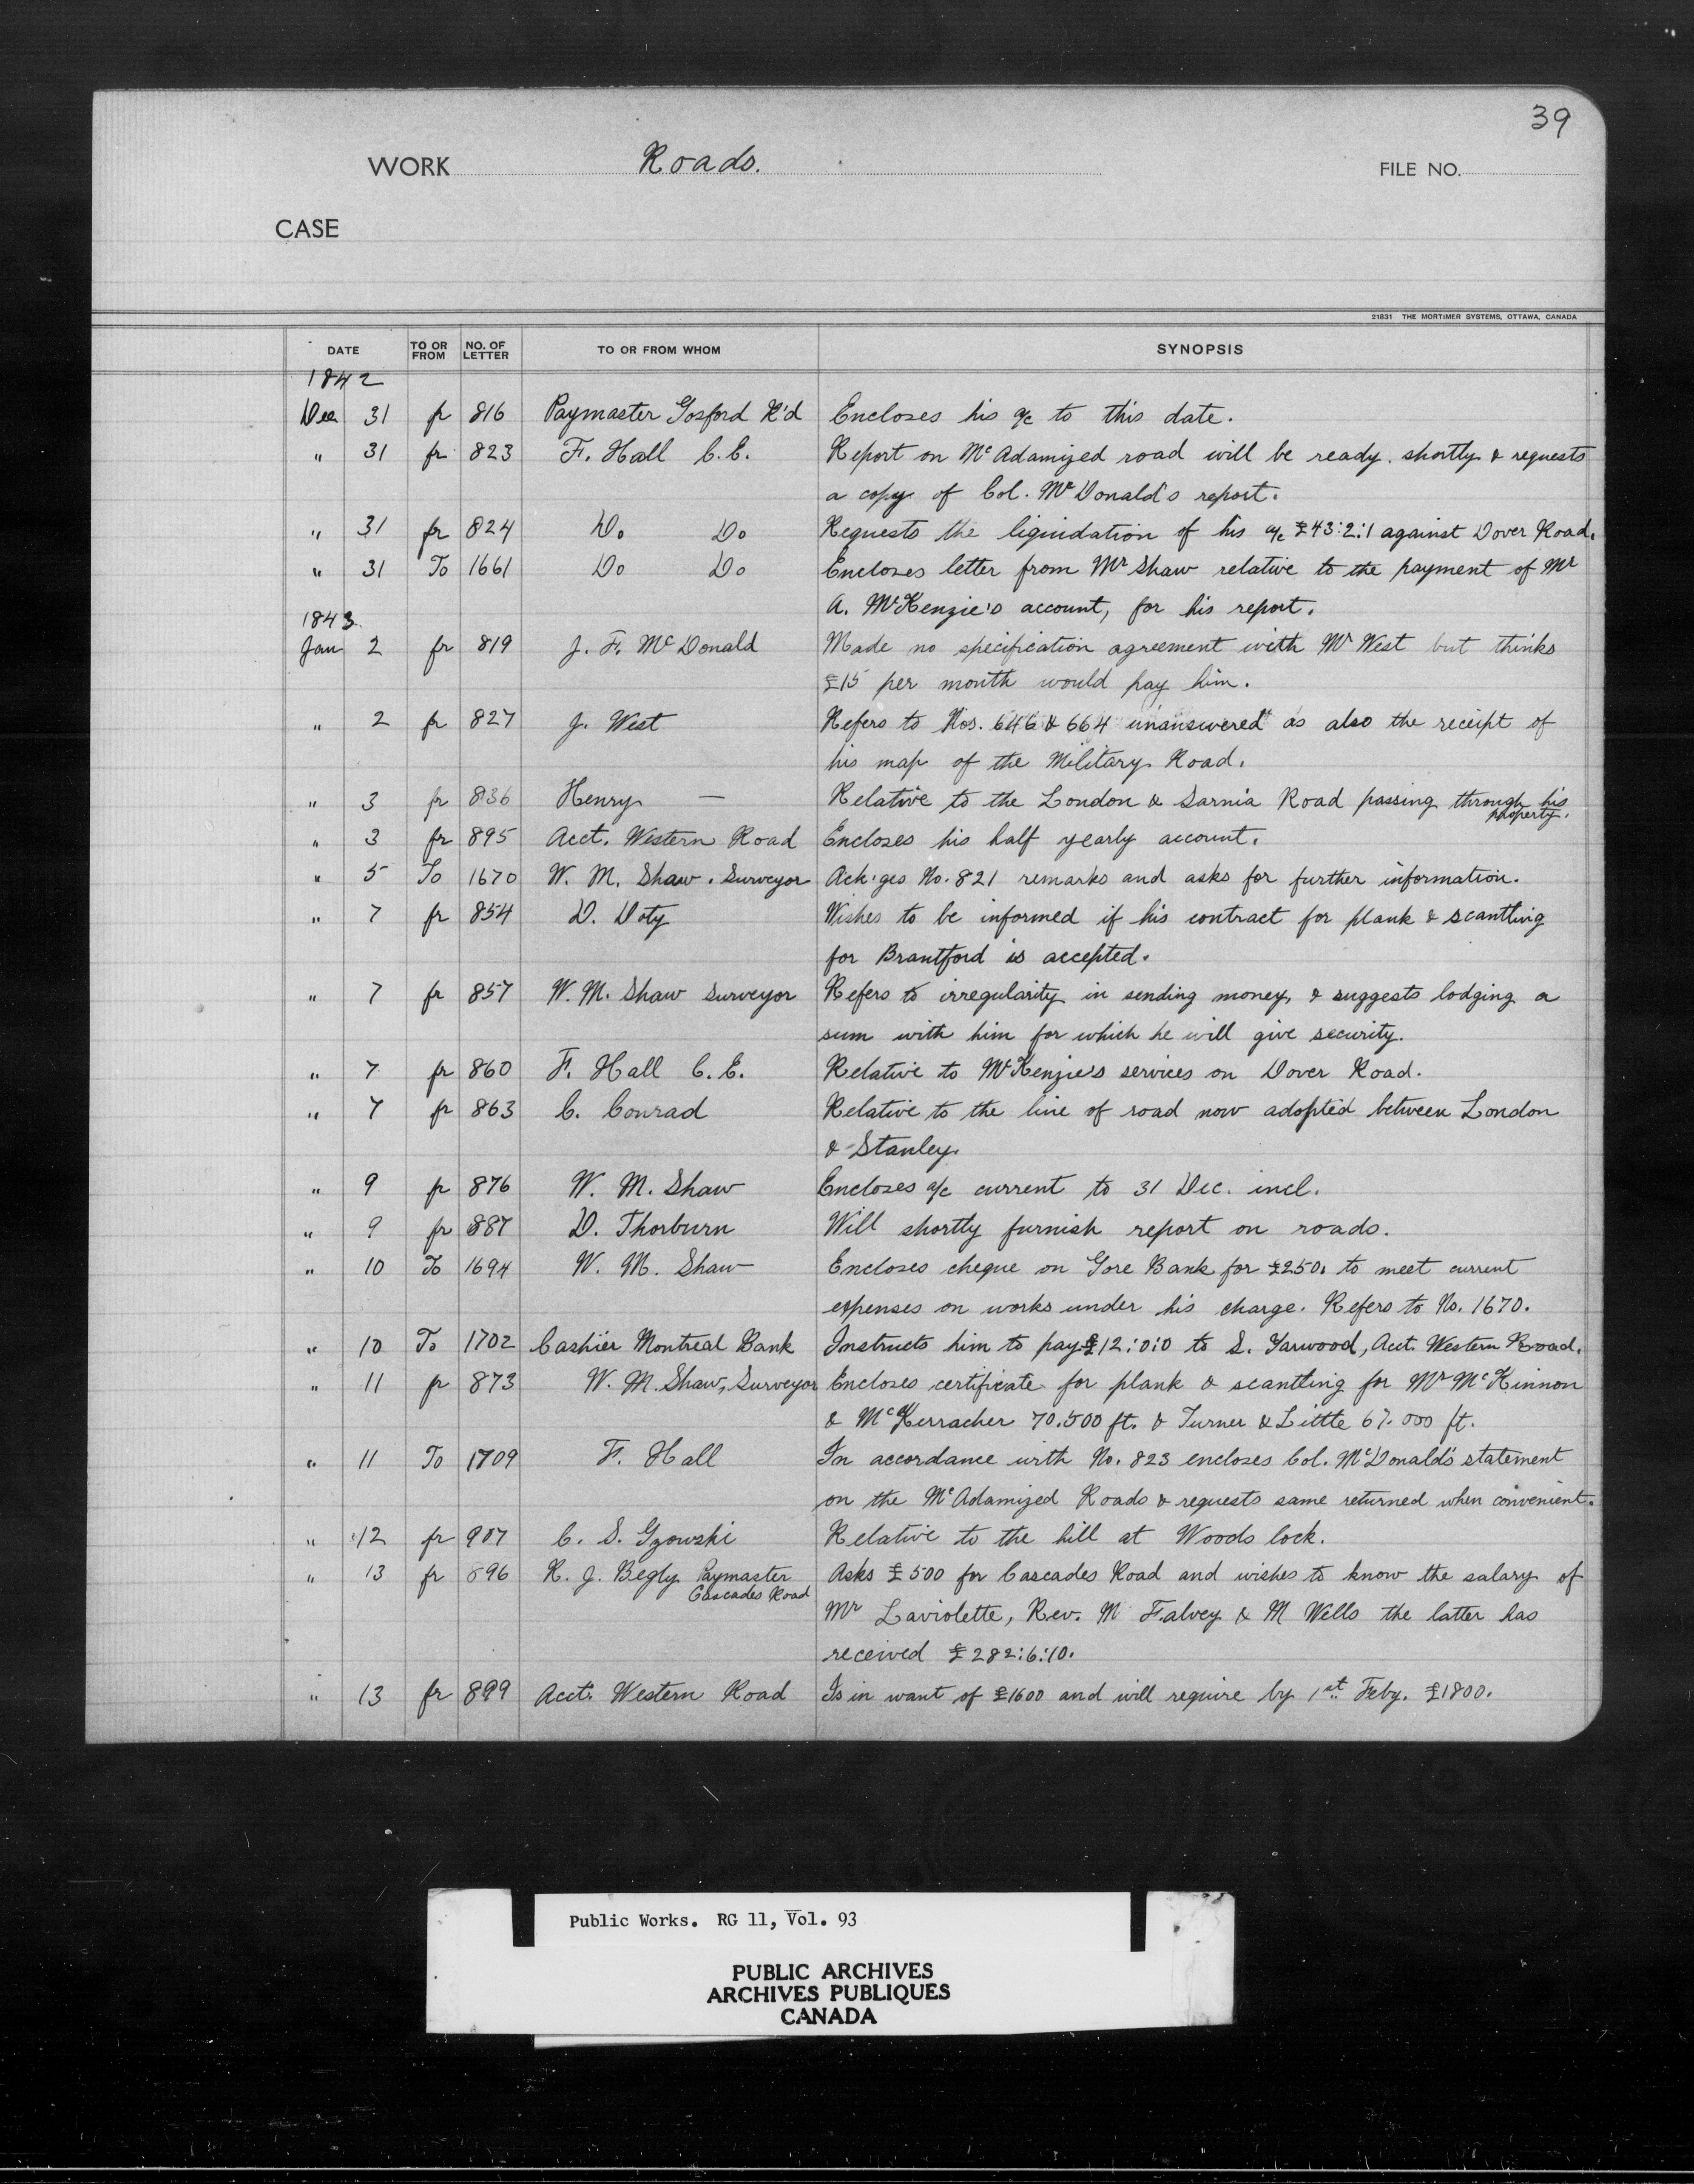 39
WORK Roads. FILE NO.
CASE
21831 THE MORTIMER SYSTEMS, OTTAWA, CANADA
DATE TO OR FROM NO. OF LETTER TO OR FROM WHOM SYNOPSIS
1842
Dec 31 fr 816 Paymaster Gosford R'd Encloses his a/c to this date.
" 31 fr 823 F. Hall C.E. Report on McAdamized road will be ready shortly & requests
a copy of Col. McDonald's report.
" 31 fr 824 Do Do Requests the liquidation of his a/c £43:2:1 against Dover Road.
" 31 To 1661 Do Do Encloses letter from Mr Shaw relative to the payment of Mr
A. McKenzie's account, for his report.
1843
Jan 2 fr 819 J. F. McDonald Made no specification agreement with Mr West but thinks
£15 per month would pay him.
" 2 fr 827 J. West Refers to Nos. 646 & 664 unanswered as also the receipt of
his map of the Military Road.
" 3 fr 836 Henry — Relative to the London & Sarnia Road passing through his
property.
" 3 fr 895 Acct. Western Road Encloses his half yearly account.
" 5 To 1670 W. M. Shaw. Surveyor Ack'ges No. 821 remarks and asks for further information.
" 7 fr 854 D. Doty Wishes to be informed if his contract for plank & scantling
for Brantford is accepted.
" 7 fr 857 W. M. Shaw Surveyor Refers to irregularity in sending money, & suggests lodging a
sum with him for which he will give security.
" 7 fr 860 F. Hall C.E. Relative to McKenzie's services on Dover Road.
" 7 fr 863 C. Conrad Relative to the line of road now adopted between London
& Stanley.
" 9 fr 876 W. M. Shaw Encloses a/c current to 31 Dec. incl.
" 9 fr 887 D. Thorburn Will shortly furnish report on roads.
" 10 To 1694 W. M. Shaw Encloses cheque on Gore Bank for £250. to meet current
expenses on works under his charge. Refers to No. 1670.
" 10 To 1702 Cashier Montreal Bank Instructs him to pay £12:0:0 to S. Yarwood, Acct. Western Road.
" 11 fr 873 W. M. Shaw, Surveyor Encloses certificate for plank & scantling for Mr McKinnon
& McKerracher 70.500 ft. & Turner & Little 67.000 ft.
" 11 To 1709 F. Hall In accordance with No. 823 encloses Col. McDonald's statement
on the McAdamized Roads & requests same returned when convenient.
" 12 fr 907 C. S. Gzowski Relative to the hill at Woods lock.
" 13 fr 896 R. J. Begly Paymaster Asks £500 for Cascades Road and wishes to know the salary of
Cascades Road
Mr Laviolette, Rev. M Falvey & M Wells the latter has
received £282:6:10.
" 13 fr 899 Acct. Western Road Is in want of £1600 and will require by 1st Feby. £1800.
Public Works. RG 11, Vol. 93
PUBLIC ARCHIVES
ARCHIVES PUBLIQUES
CANADA